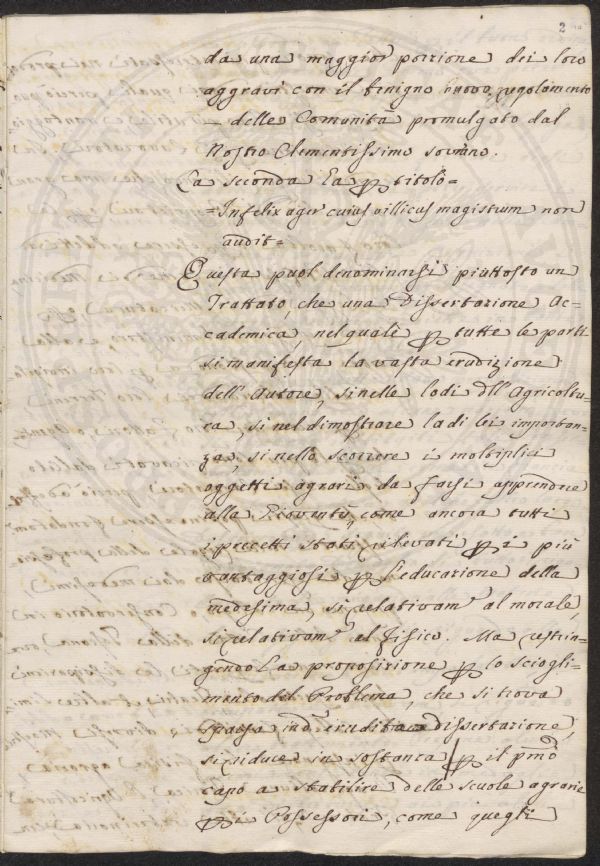 2
da una maggior porzione dei loro
aggravi con il benigno nuovo regolamento
delle Comunità promulgato dal
Nostro Clementissimo sovrano.
La seconda ha p titolo=
=Infelix ager cuius villicus magistrum non
audit=
Questa puol denominarsi piuttosto un
Trattato, che una Dissertazione Ac=
cademica, nel quale p tutte le parti
si manifesta la vasta erudizione
dell'Autore, si nelle lodi dell'Agricoltu=
ra, si nel dimostrare la di lei importan=
za, si nello scorrere i moltiplici
oggetti agrari da farsi apprendere
alla Gioventù, come ancora tutti
i precetti stati rilevati p i più
vantaggiosi p l'educazione della
medesima, si relativamᵉ al morale,
si relativamᵉ al fisico. Ma restrin=
gendo la proposizione p lo sciogli=
mento del Problema, che si trova
sparsa in dᵃ erudita dissertazione,
si riduce in sostanza p il pmo
capo a stabilire delle scuole agrarie
p i Possessori, come quegli